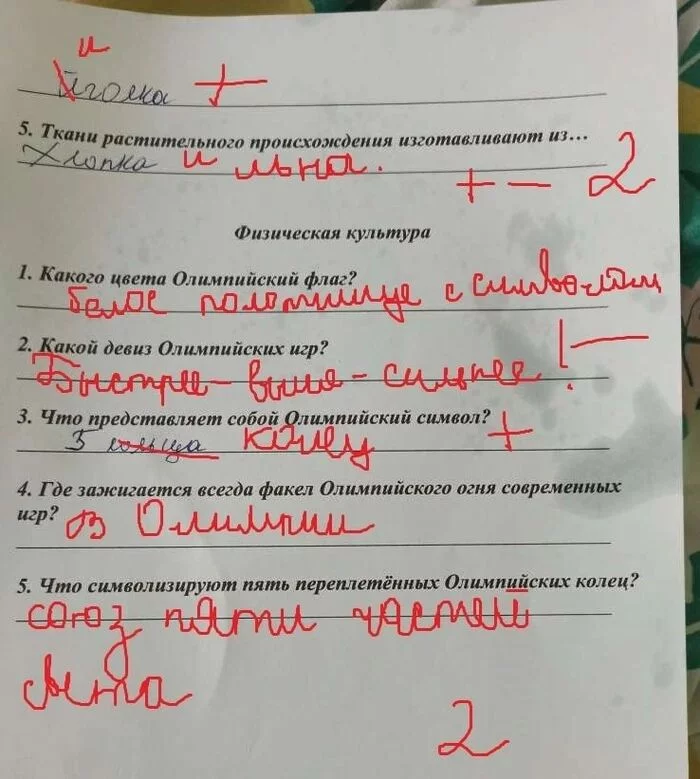 и
Йголка +
5. Ткани растительного происхождения изготавливают из...
Хлопка и льна.
+ - 2
Физическая культура
1. Какого цвета Олимпийский флаг?
белое полотнище с символом
2. Какой девиз Олимпийских игр?
Быстрее - выше - сильнее! -
3. Что представляет собой Олимпийский символ?
5 кольца колец +
4. Где зажигается всегда факел Олимпийского огня современных
игр? в Олимпии
5. Что символизируют пять переплетённых Олимпийских колец?
союз пяти частей
света
2